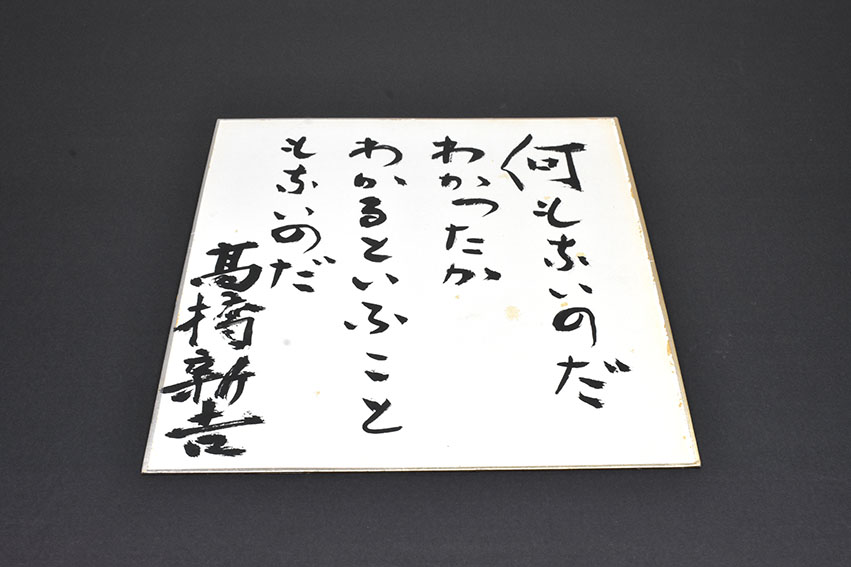 何もないのだ
わかつたか
わかるといふこと
もないのだ
髙橋新吉